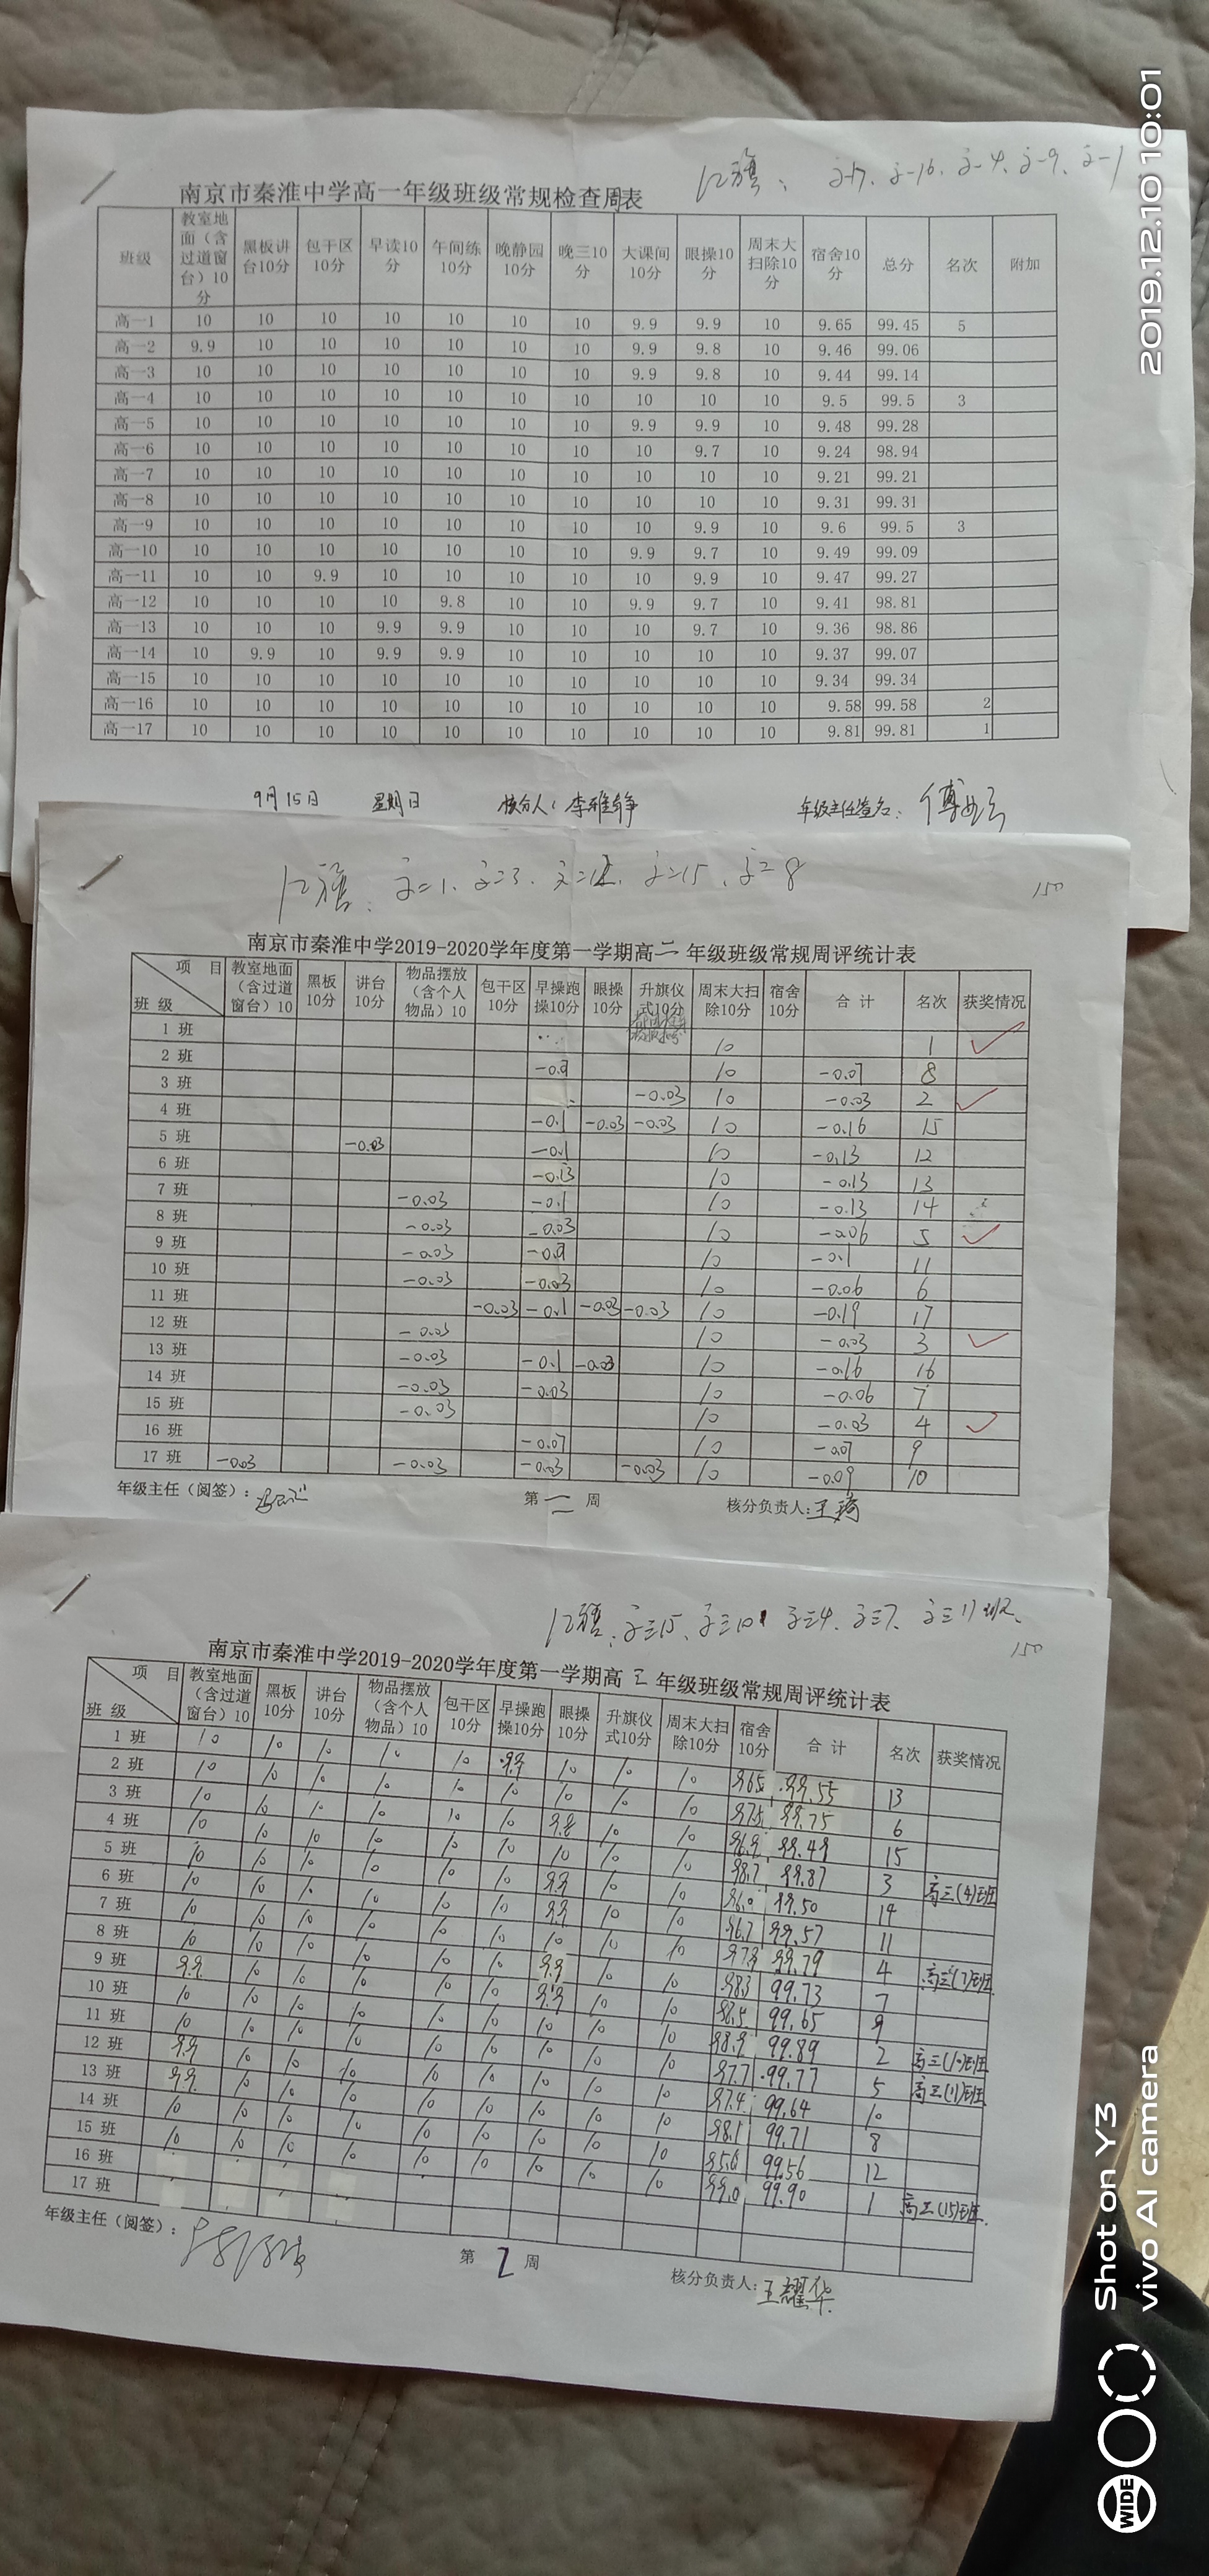 红旗：高一17、高一16、高一4、高一9、高一1
南京市秦淮中学高一年级班级常规检查周表
班级 教室地面（含过道窗台）10分 黑板讲台10分 包干区10分 早读10分 午间练10分 晚静园10分 晚三10分 大课间10分 眼操10分 周末大扫除10分 宿舍10分 总分 名次 附加
高一1 10 10 10 10 10 10 10 9.9 9.9 10 9.65 99.45 5
高一2 9.9 10 10 10 10 10 10 9.9 9.8 10 9.46 99.06
高一3 10 10 10 10 10 10 10 9.9 9.8 10 9.44 99.14
高一4 10 10 10 10 10 10 10 10 10 10 9.5 99.5 3
高一5 10 10 10 10 10 10 10 9.9 9.9 10 9.48 99.28
高一6 10 10 10 10 10 10 10 10 9.7 10 9.24 98.94
高一7 10 10 10 10 10 10 10 10 10 10 9.21 99.21
高一8 10 10 10 10 10 10 10 10 10 10 9.31 99.31
高一9 10 10 10 10 10 10 10 10 9.9 10 9.6 99.5 3
高一10 10 10 10 10 10 10 10 9.9 9.7 10 9.49 99.09
高一11 10 10 9.9 10 10 10 10 10 9.9 10 9.47 99.27
高一12 10 10 10 10 9.8 10 10 9.9 9.7 10 9.41 98.81
高一13 10 10 10 9.9 9.9 10 10 10 9.7 10 9.36 98.86
高一14 10 9.9 10 9.9 9.9 10 10 10 10 10 9.37 99.07
高一15 10 10 10 10 10 10 10 10 10 10 9.34 99.34
高一16 10 10 10 10 10 10 10 10 10 10 9.58 99.58 2
高一17 10 10 10 10 10 10 10 10 10 10 9.81 99.81 1
9月15日 星期日 核分人：李雅静 年级主任签名：
红旗：高二1、高二3、高二12、高二15、高二8
150
南京市秦淮中学2019-2020学年度第一学期高二年级班级常规周评统计表
项目 班级 教室地面（含过道窗台）10 黑板10分 讲台10分 物品摆放（含个人物品）10 包干区10分 早操跑操10分 眼操10分 升旗仪式10分 周末大扫除10分 宿舍10分 合计 名次 获奖情况
1班 10 1 ✓
2班 10 -0.07 8
3班 -0.03 10 -0.03 2 ✓
4班 -0.1 -0.03 -0.03 10 -0.16 15
5班 -0.03 -0.1 10 -0.13 12
6班 -0.13 10 -0.13 13
7班 -0.03 -0.1 10 -0.13 14
8班 -0.03 -0.03 10 -0.06 5 ✓
9班 -0.03 10 -0.1 11
10班 -0.03 -0.03 10 -0.06 6
11班 -0.03 -0.1 -0.03 -0.03 10 -0.19 17
12班 -0.03 10 -0.03 3 ✓
13班 -0.03 -0.1 -0.03 10 -0.16 16
14班 -0.03 -0.03 10 -0.06 7
15班 -0.03 10 -0.03 4 ✓
16班 -0.07 10 -0.07 9
17班 -0.03 -0.03 -0.03 -0.03 10 -0.09 10
年级主任（阅签）： 第二周 核分负责人：王琦
红旗：高三15、高三10、高三4、高三7、高三11班
150
南京市秦淮中学2019-2020学年度第一学期高三年级班级常规周评统计表
项目 班级 教室地面（含过道窗台）10 黑板10分 讲台10分 物品摆放（含个人物品）10 包干区10分 早操跑操10分 眼操10分 升旗仪式10分 周末大扫除10分 宿舍10分 合计 名次 获奖情况
1班 10 10 10 10 10 9.9 10 10 10 9.65 99.55 13
2班 10 10 10 10 10 10 10 10 10 9.75 99.75 6
3班 10 10 10 10 10 10 9.8 10 10 9.69 99.49 15
4班 10 10 10 10 10 10 10 10 10 9.87 99.87 3 高三(4)班
5班 10 10 10 10 10 10 9.9 10 10 99.50 14
6班 10 10 10 10 10 10 9.9 10 10 9.67 99.57 11
7班 10 10 10 10 10 10 10 10 10 9.79 99.79 4 高三(7)班
8班 10 10 10 10 10 10 9.9 10 10 9.83 99.73 7
9班 9.9 10 10 10 10 10 9.9 10 10 9.85 99.65 9
10班 10 10 10 10 10 10 10 10 10 9.89 99.89 2 高三(10)班
11班 10 10 10 10 10 10 10 10 10 9.77 99.77 5 高三(11)班
12班 9.9 10 10 10 10 10 10 10 10 9.74 99.64 10
13班 9.9 10 10 10 10 10 10 10 10 9.81 99.71 8
14班 10 10 10 10 10 10 10 10 10 9.56 99.56 12
15班 10 10 10 10 10 10 10 10 10 9.90 99.90 1 高三(15)班
16班
17班
年级主任（阅签）： 第2周 核分负责人：王耀华
2019.12.10 10:01
Shot on Y3
vivo AI camera
WIDE